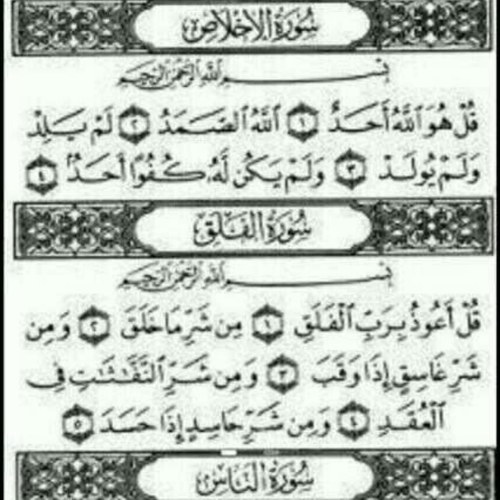 سُورَةُ الإِخْلَاصِ
بِسْمِ اللَّهِ الرَّحْمَٰنِ الرَّحِيمِ
قُلْ هُوَ اللَّهُ أَحَدٌ ١ اللَّهُ الصَّمَدُ ٢ لَمْ يَلِدْ
وَلَمْ يُولَدْ ٣ وَلَمْ يَكُن لَّهُ كُفُوًا أَحَدٌ ٤
سُورَةُ الْفَلَقِ
بِسْمِ اللَّهِ الرَّحْمَٰنِ الرَّحِيمِ
قُلْ أَعُوذُ بِرَبِّ الْفَلَقِ ١ مِن شَرِّ مَا خَلَقَ ٢ وَمِن
شَرِّ غَاسِقٍ إِذَا وَقَبَ ٣ وَمِن شَرِّ النَّفَّاثَاتِ فِي
الْعُقَدِ ٤ وَمِن شَرِّ حَاسِدٍ إِذَا حَسَدَ ٥
سُورَةُ النَّاسِ